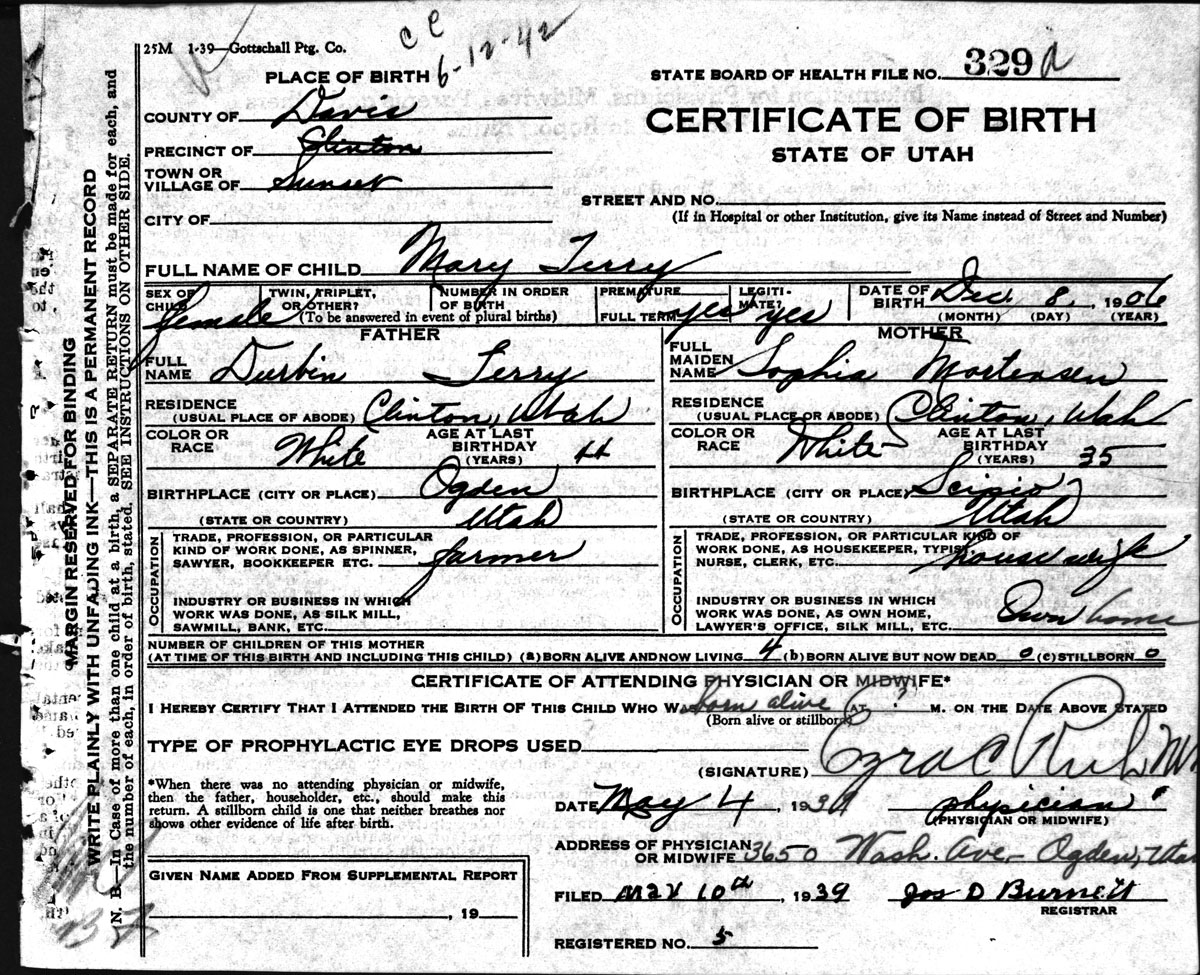 25M 1-39—Gottschall Ptg. Co.
CC
6-12-42
PLACE OF BIRTH
STATE BOARD OF HEALTH FILE NO. 329
COUNTY OF Davis
CERTIFICATE OF BIRTH
PRECINCT OF Clinton
STATE OF UTAH
TOWN OR
VILLAGE OF Sunset
STREET AND NO.
CITY OF
(If in Hospital or other Institution, give its Name instead of Street and Number)
FULL NAME OF CHILD Mary Terry
SEX OF CHILD female
TWIN, TRIPLET, OR OTHER?
NUMBER IN ORDER OF BIRTH
(To be answered in event of plural births)
PREMATURE
FULL TERM yes
LEGITI-
MATE? yes
DATE OF BIRTH Dec. 8, 1906
(MONTH) (DAY) (YEAR)
FATHER
FULL NAME Durbin Terry
RESIDENCE
(USUAL PLACE OF ABODE) Clinton, Utah
COLOR OR RACE White
AGE AT LAST BIRTHDAY (YEARS) 44
BIRTHPLACE (CITY OR PLACE) Ogden
(STATE OR COUNTRY) Utah
OCCUPATION
TRADE, PROFESSION, OR PARTICULAR
KIND OF WORK DONE, AS SPINNER,
SAWYER, BOOKKEEPER ETC. farmer
INDUSTRY OR BUSINESS IN WHICH
WORK WAS DONE, AS SILK MILL,
SAWMILL, BANK, ETC.
MOTHER
FULL MAIDEN NAME Sophia Mortensen
RESIDENCE
(USUAL PLACE OF ABODE) Clinton, Utah
COLOR OR RACE White
AGE AT LAST BIRTHDAY (YEARS) 35
BIRTHPLACE (CITY OR PLACE) Scipio
(STATE OR COUNTRY) Utah
OCCUPATION
TRADE, PROFESSION, OR PARTICULAR KIND OF
WORK DONE, AS HOUSEKEEPER, TYPIST,
NURSE, CLERK, ETC. housewife
INDUSTRY OR BUSINESS IN WHICH
WORK WAS DONE, AS OWN HOME,
LAWYER'S OFFICE, SILK MILL, ETC. Own home
NUMBER OF CHILDREN OF THIS MOTHER
(AT TIME OF THIS BIRTH AND INCLUDING THIS CHILD) (a) BORN ALIVE AND NOW LIVING 4 (b) BORN ALIVE BUT NOW DEAD 0 (c) STILLBORN 0
CERTIFICATE OF ATTENDING PHYSICIAN OR MIDWIFE*
I HEREBY CERTIFY THAT I ATTENDED THE BIRTH OF THIS CHILD WHO WAS born alive AT ? M. ON THE DATE ABOVE STATED
(Born alive or stillborn)
TYPE OF PROPHYLACTIC EYE DROPS USED
(SIGNATURE) Ezra C Rich MD
*When there was no attending physician or midwife,
then the father, householder, etc., should make this
return. A stillborn child is one that neither breathes nor
shows other evidence of life after birth.
DATE May 4, 1939 physician
(PHYSICIAN OR MIDWIFE)
ADDRESS OF PHYSICIAN
OR MIDWIFE 3650 Wash. Ave - Ogden, Utah
GIVEN NAME ADDED FROM SUPPLEMENTAL REPORT
, 19
FILED May 10th, 1939 Jos D Burnett
REGISTRAR
REGISTERED NO. 5
MARGIN RESERVED FOR BINDING
WRITE PLAINLY WITH UNFADING INK—THIS IS A PERMANENT RECORD
N. B.—In Case of more than one child at a birth, a SEPARATE RETURN must be made for each, and
the number of each, in order of birth, stated. SEE INSTRUCTIONS ON OTHER SIDE.